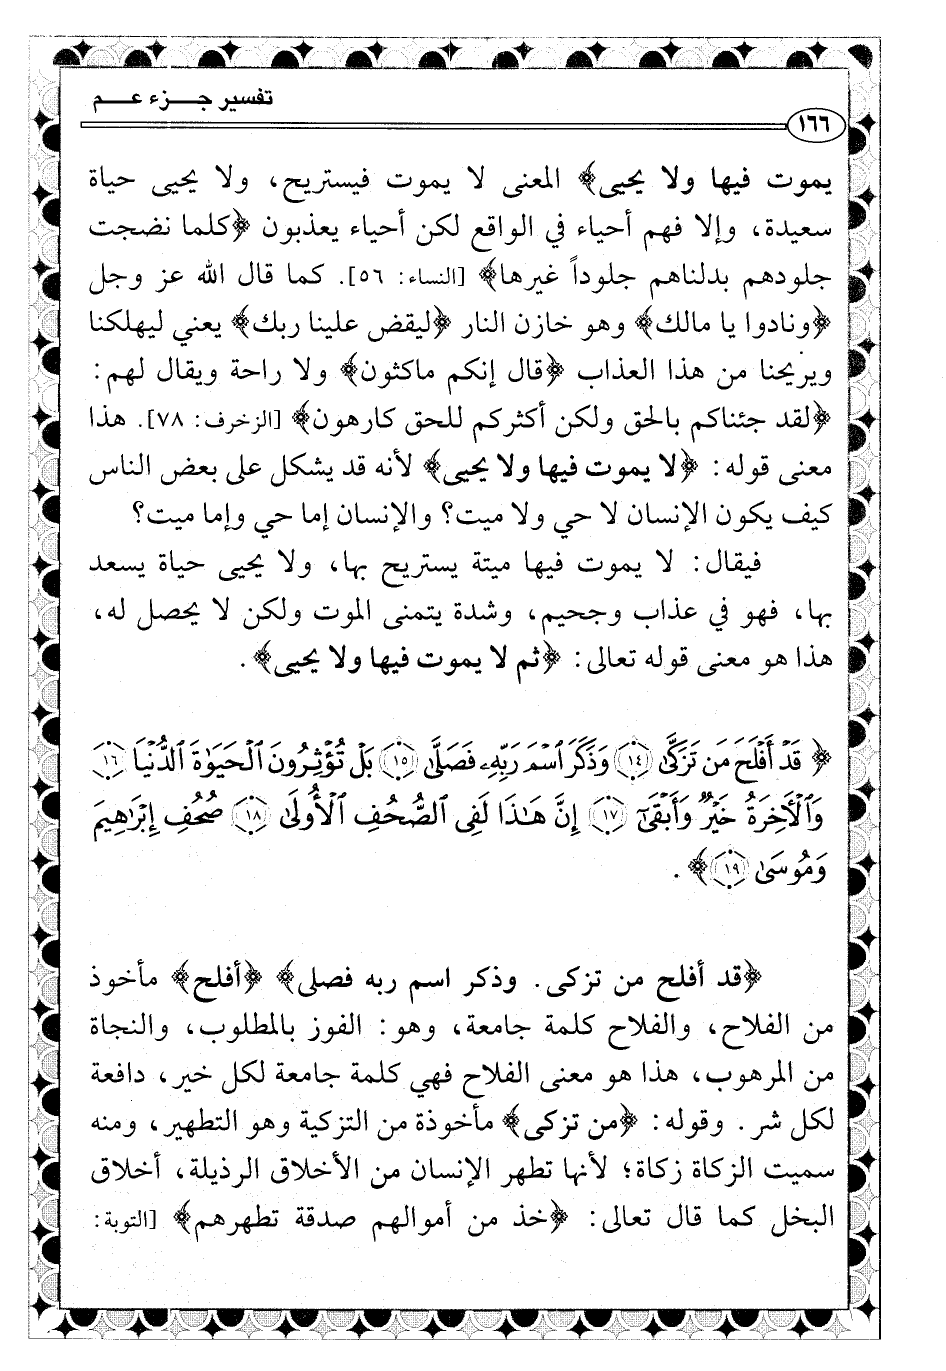 تفسير جزء عم
١٦٦
يموت فيها ولا يحيى﴾ المعنى لا يموت فيستريح، ولا يحيى حياة
سعيدة، وإلا فهم أحياء في الواقع لكن أحياء يعذبون ﴿كلما نضجت
جلودهم بدلناهم جلوداً غيرها﴾ [النساء: ٥٦]. كما قال الله عز وجل
﴿ونادوا يا مالك﴾ وهو خازن النار ﴿ليقض علينا ربك﴾ يعني ليهلكنا
ويريحنا من هذا العذاب ﴿قال إنكم ماكثون﴾ ولا راحة ويقال لهم:
﴿لقد جئناكم بالحق ولكن أكثركم للحق كارهون﴾ [الزخرف: ٧٨]. هذا
معنى قوله: ﴿لا يموت فيها ولا يحيى﴾ لأنه قد يشكل على بعض الناس
كيف يكون الإنسان لا حي ولا ميت؟ والإنسان إما حي وإما ميت؟
فيقال: لا يموت فيها ميتة يستريح بها، ولا يحيى حياة يسعد
بها، فهو في عذاب وجحيم، وشدة يتمنى الموت ولكن لا يحصل له،
هذا هو معنى قوله تعالى: ﴿ثم لا يموت فيها ولا يحيى﴾.
﴿ قَدْ أَفْلَحَ مَن تَزَكَّىٰ ١٤ وَذَكَرَ ٱسْمَ رَبِّهِۦ فَصَلَّىٰ ١٥ بَلْ تُؤْثِرُونَ ٱلْحَيَوٰةَ ٱلدُّنْيَا ١٦
وَٱلْأَخِرَةُ خَيْرٌ وَأَبْقَىٰٓ ١٧ إِنَّ هَٰذَا لَفِى ٱلصُّحُفِ ٱلْأُولَىٰ ١٨ صُحُفِ إِبْرَٰهِيمَ
وَمُوسَىٰ ١٩﴾ .
﴿قد أفلح من تزكى. وذكر اسم ربه فصلى﴾ ﴿أفلح﴾ مأخوذ
من الفلاح، والفلاح كلمة جامعة، وهو: الفوز بالمطلوب، والنجاة
من المرهوب، هذا هو معنى الفلاح فهي كلمة جامعة لكل خير، دافعة
لكل شر. وقوله: ﴿من تزكى﴾ مأخوذة من التزكية وهو التطهير، ومنه
سميت الزكاة زكاة؛ لأنها تطهر الإنسان من الأخلاق الرذيلة، أخلاق
البخل كما قال تعالى: ﴿خذ من أموالهم صدقة تطهرهم﴾ [التوبة: